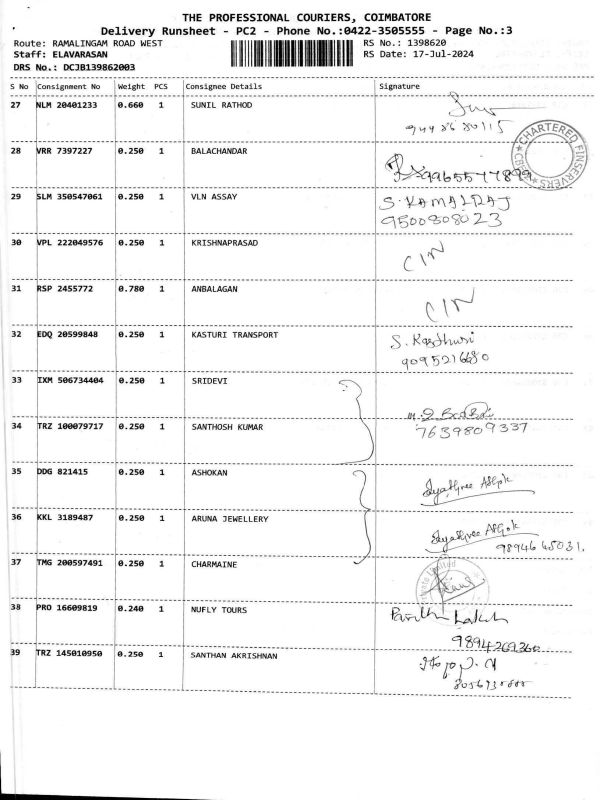 THE PROFESSIONAL COURIERS, COIMBATORE
Delivery Runsheet - PC2 - Phone No.:0422-3505555 - Page No.:3
Route: RAMALINGAM ROAD WEST RS No.: 1398620
Staff: ELAVARASAN RS Date: 17-Jul-2024
DRS No.: DCJB139862003
S No Consignment No Weight PCS Consignee Details Signature
27 NLM 20401233 0.660 1 SUNIL RATHOD
28 VRR 7397227 0.250 1 BALACHANDAR
CHARTERED FINSERVERS
29 SLM 350547061 0.250 1 VLN ASSAY S. KAMALRAJ
9500808023
30 VPL 222049576 0.250 1 KRISHNAPRASAD CIN
31 RSP 2455772 0.780 1 ANBALAGAN CIN
32 EDQ 20599848 0.250 1 KASTURI TRANSPORT S. Kasthuri
33 IXM 506734404 0.250 1 SRIDEVI
34 TRZ 100079717 0.250 1 SANTHOSH KUMAR 7639809337
35 DDG 821415 0.250 1 ASHOKAN
36 KKL 3189487 0.250 1 ARUNA JEWELLERY
37 TMG 200597491 0.250 1 CHARMAINE
38 PRO 16609819 0.240 1 NUFLY TOURS
9894269360
39 TRZ 145010950 0.250 1 SANTHAN AKRISHNAN